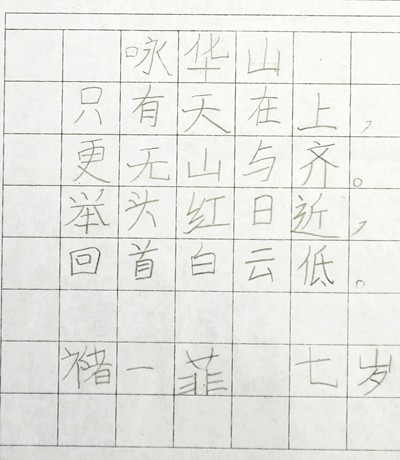 咏华山
只有天在上，
更无山与齐。
举头红日近，
回首白云低。
褚一菲 七岁